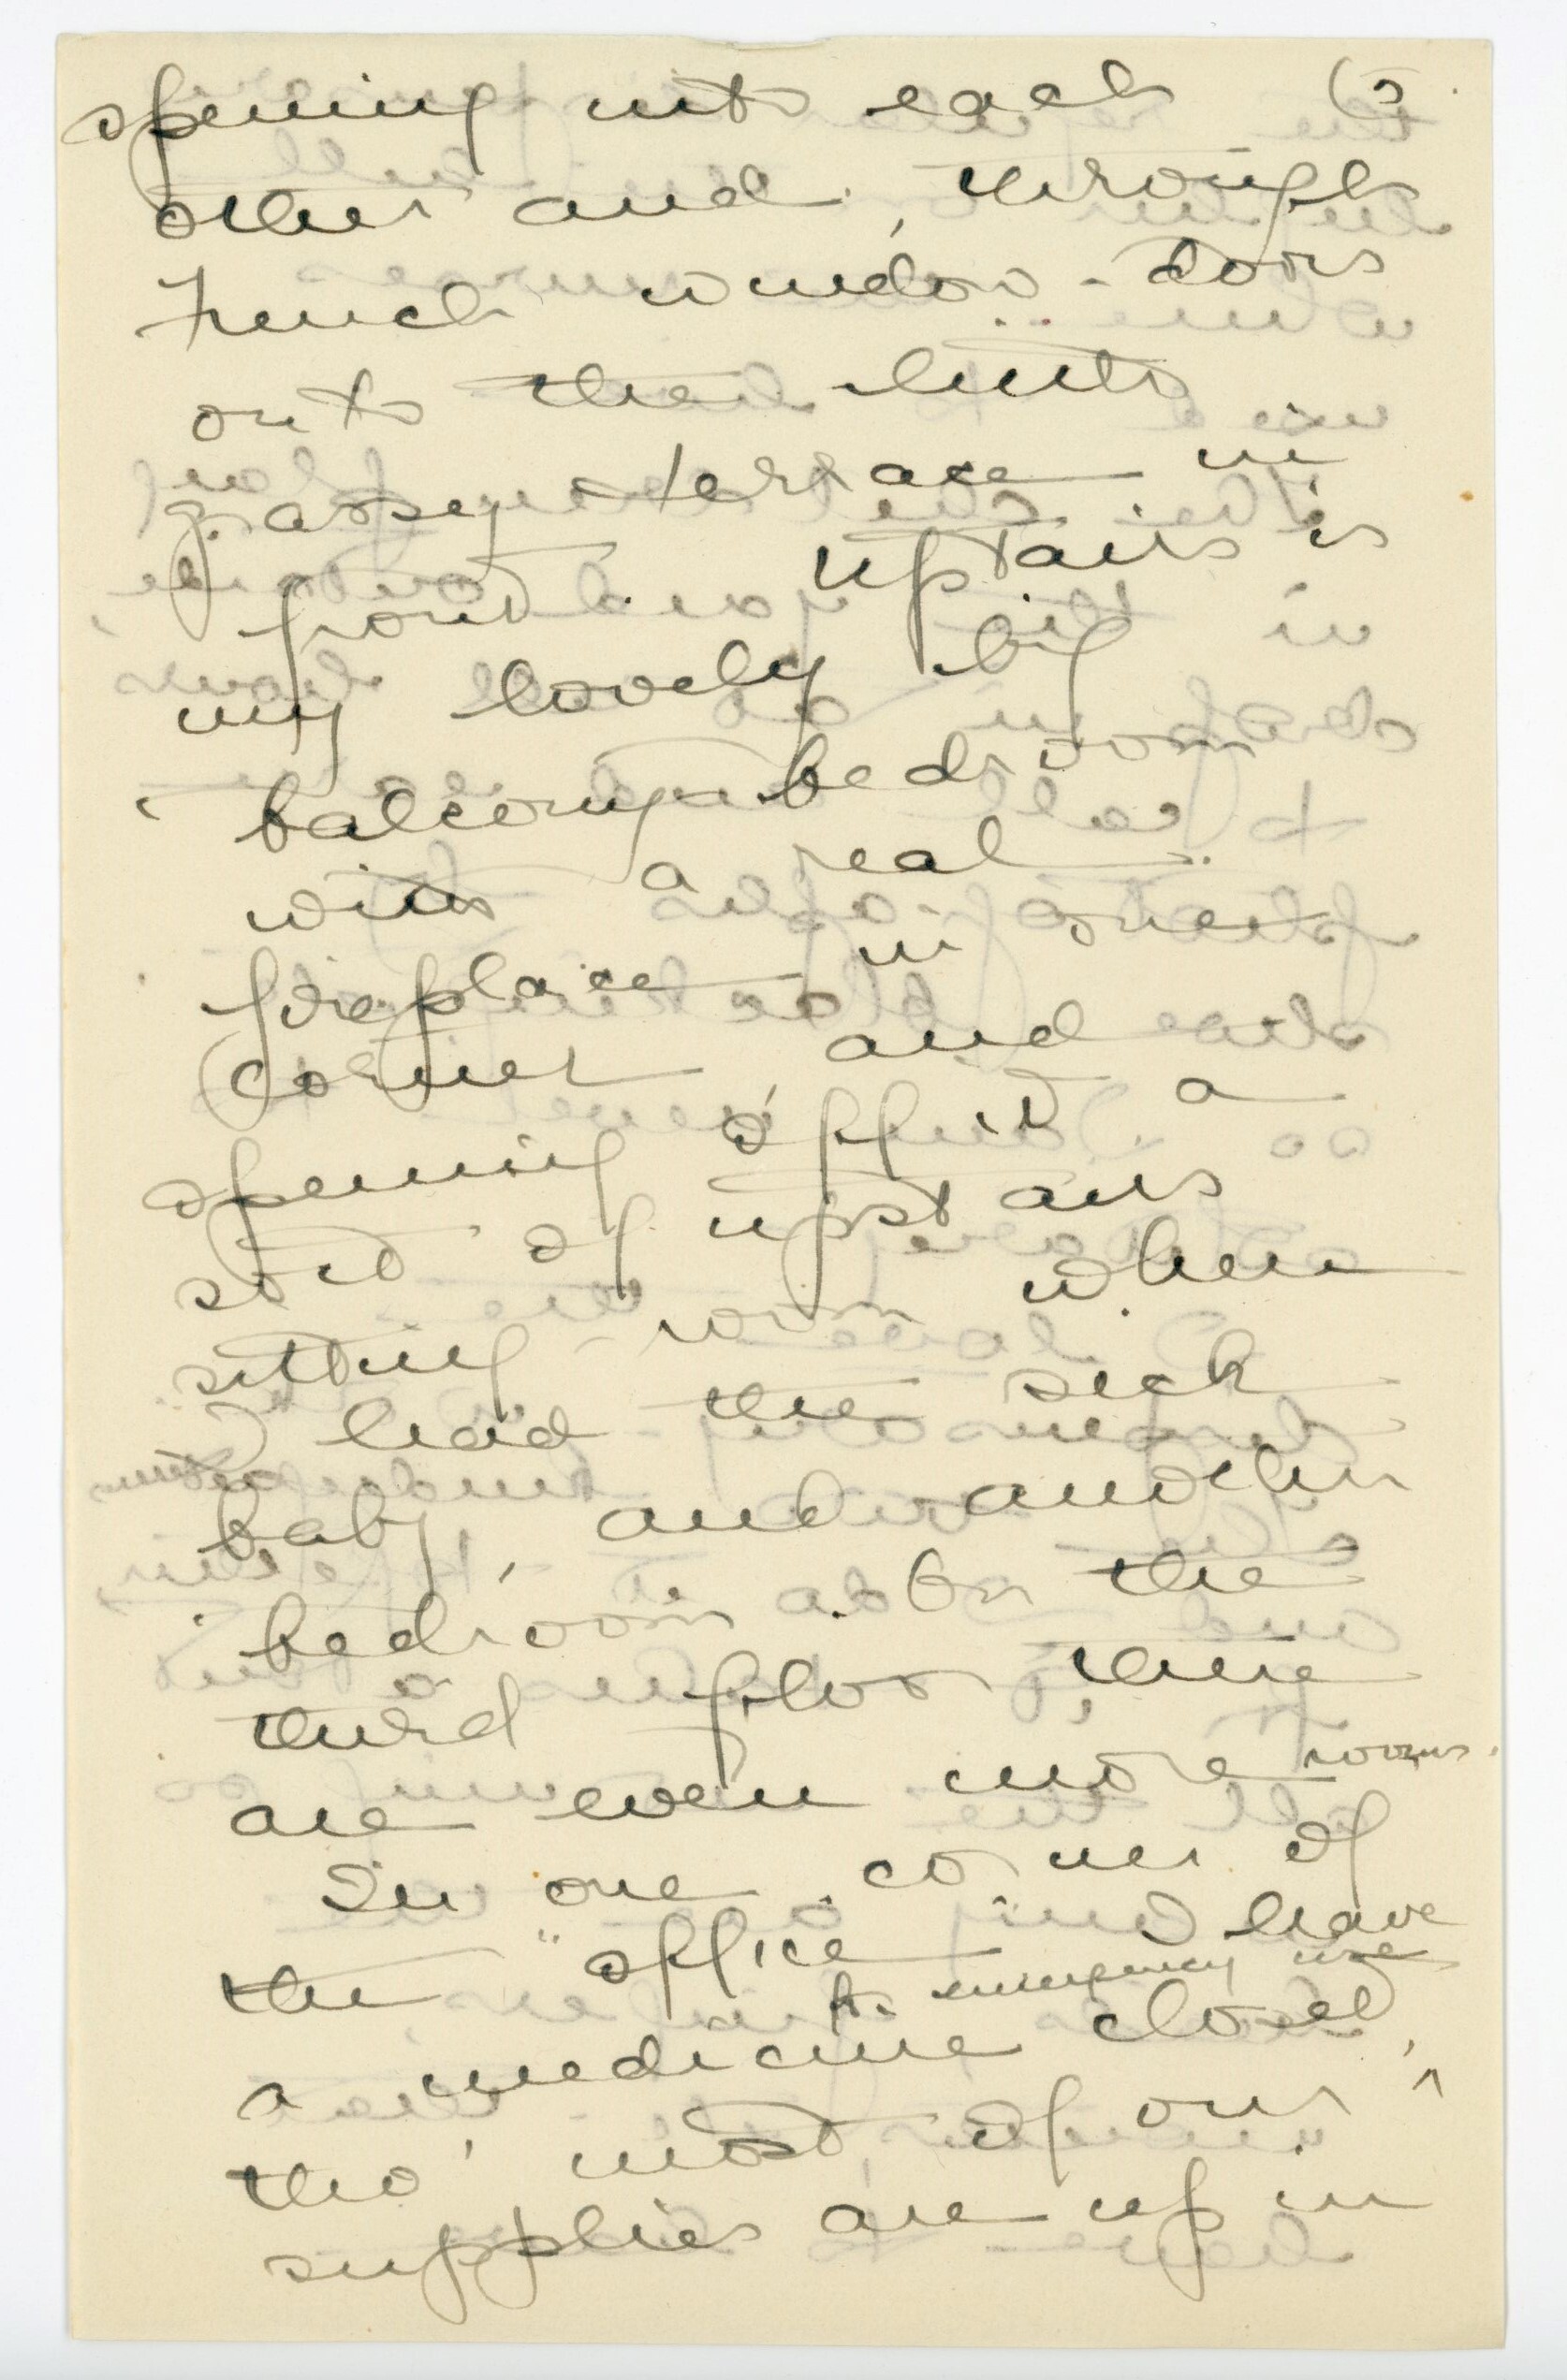 opening into each (5
other and, through
french window-doors
onto the little
grassy terrace in
front. Upstairs is
my lovely big
balcony bedroom
with a real
fireplace in one
corner, and
opening off it a
sort of upstairs
sitting-room where
I had the sick
baby, and another
bedroom. On the
third floor, there
are even more rooms.
In one corner of
the "office" I have
for emergency use
a medicine closet, ^
tho' most of our
supplies are up in